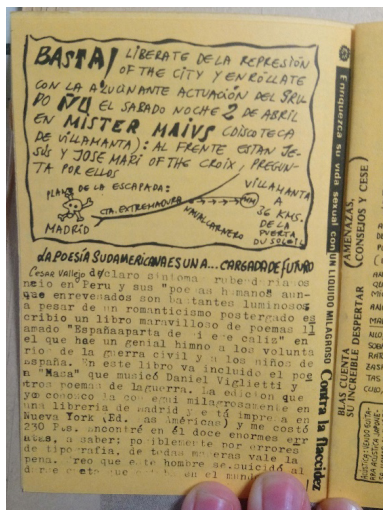 BASTA! LIBERATE DE LA REPRESIÓN
OF THE CITY Y ENRÓLLATE
CON LA ALUCINANTE ACTUACIÓN DEL GRU
PO ÑU EL SABADO NOCHE 2 DE ABRIL
EN MISTER MAIVS (DISCOTECA
DE VILLAMANTA): AL FRENTE ESTAN JE-
SÚS Y JOSE MARI OF THE CROIX, PREGUN-
TA POR ELLOS
PLANO DE LA ESCAPADA:
MADRID
CTA. EXTREMADURA
NAVALCARNERO
VILLAMANTA
A
36 KMS.
DE LA
PUERTA
DU SOLEIL
LA POESÍA SUDAMERICANA ES UNA... CARGADA DE FUTURO
Cesar Vallejo
claro sintoma
neio en Peru y sus "poemas humanos" aun-
que enrevesados son bastantes luminosos
a pesar de un romanticismo postergado es
cribio un libro maravilloso de poemas ll
amado "Españaaparta de caliz" en
el que hae un genial himno a los volunta
rios de la guerra civil y a los niños de
españa. En este libro va incluido el poe
a "Masa" que musicó Daniel Viglietti y
otros poemas de laguerra. La edicion que
yo conozco la consegui milagrosamente en
una libreria de madrid y está impresa en
Nueva York (Ed. Las Américas) y me costó
230 Pts. encontré en él doce enormes err
atas, a saber: posiblemente por errores
de tipografia, de todas maneras vale la
pena. creo que este hombre se suicidó al
en el mundo
Enriquezca su vida sexual con UN LIQUIDO MILAGROSO Contra la flaccidez
BLAS CUENTA
SU INCREIBLE DESPERTAR
(AMENAZAS,
CONSEJOS Y CESE